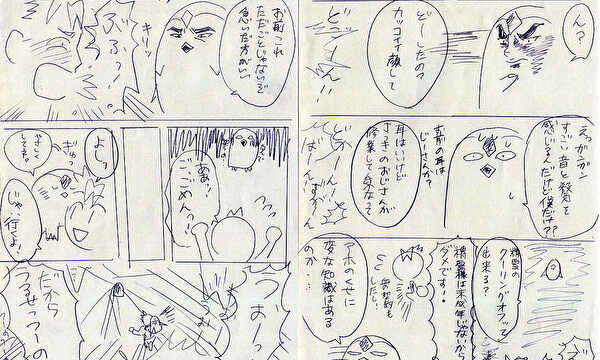 ん?
どーしたの?
カッコイイ顔して
どっごーん!!
えっガンガン
すごい音と殺気を
感じるんだけど僕だけ??
お前の耳は
じーさんか?
耳はいいけど
さっきのおじさんが
修業して
どかーん
ばーん!
精霊の
クーリングオフって
出来る?
精霊様は未成年じゃないから
ダメです!
アホのくせに
変な知識はある
のか…
お前これ
ただごとじゃないぞ
急いだ方がいい
キリッ
ぶふっ!
あっ!
ごごめんっ!!
よっ
ぎゅっ
やさしく
してネ。
じゃ、行くよ!
うっ
おーっ
だから
うるせっつーの